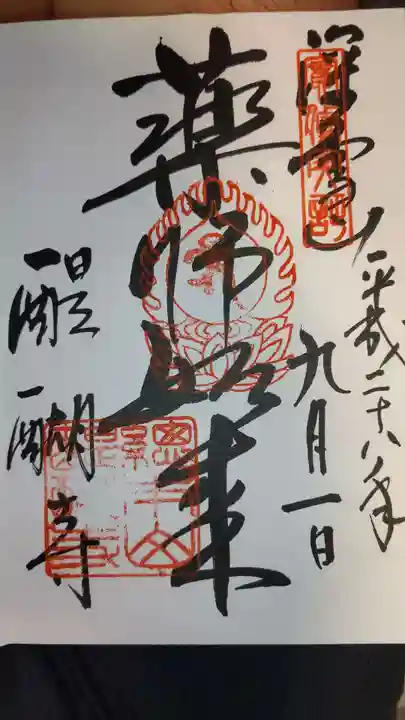 平成二十八年
九月一日
深雪山
薬師如来
醍醐寺